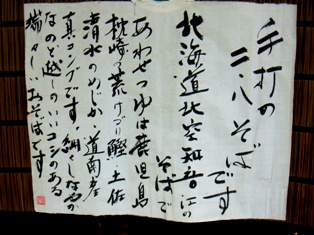 手打の
二八そば
です
北海道北空知音江の
そばで
あわせつゆは鹿児島
枕崎の荒けづり鰹土佐
清水のめじか 道南産
真コンブです。細くしなやか
なのど越しのいいコシのある
端々しいおそばです